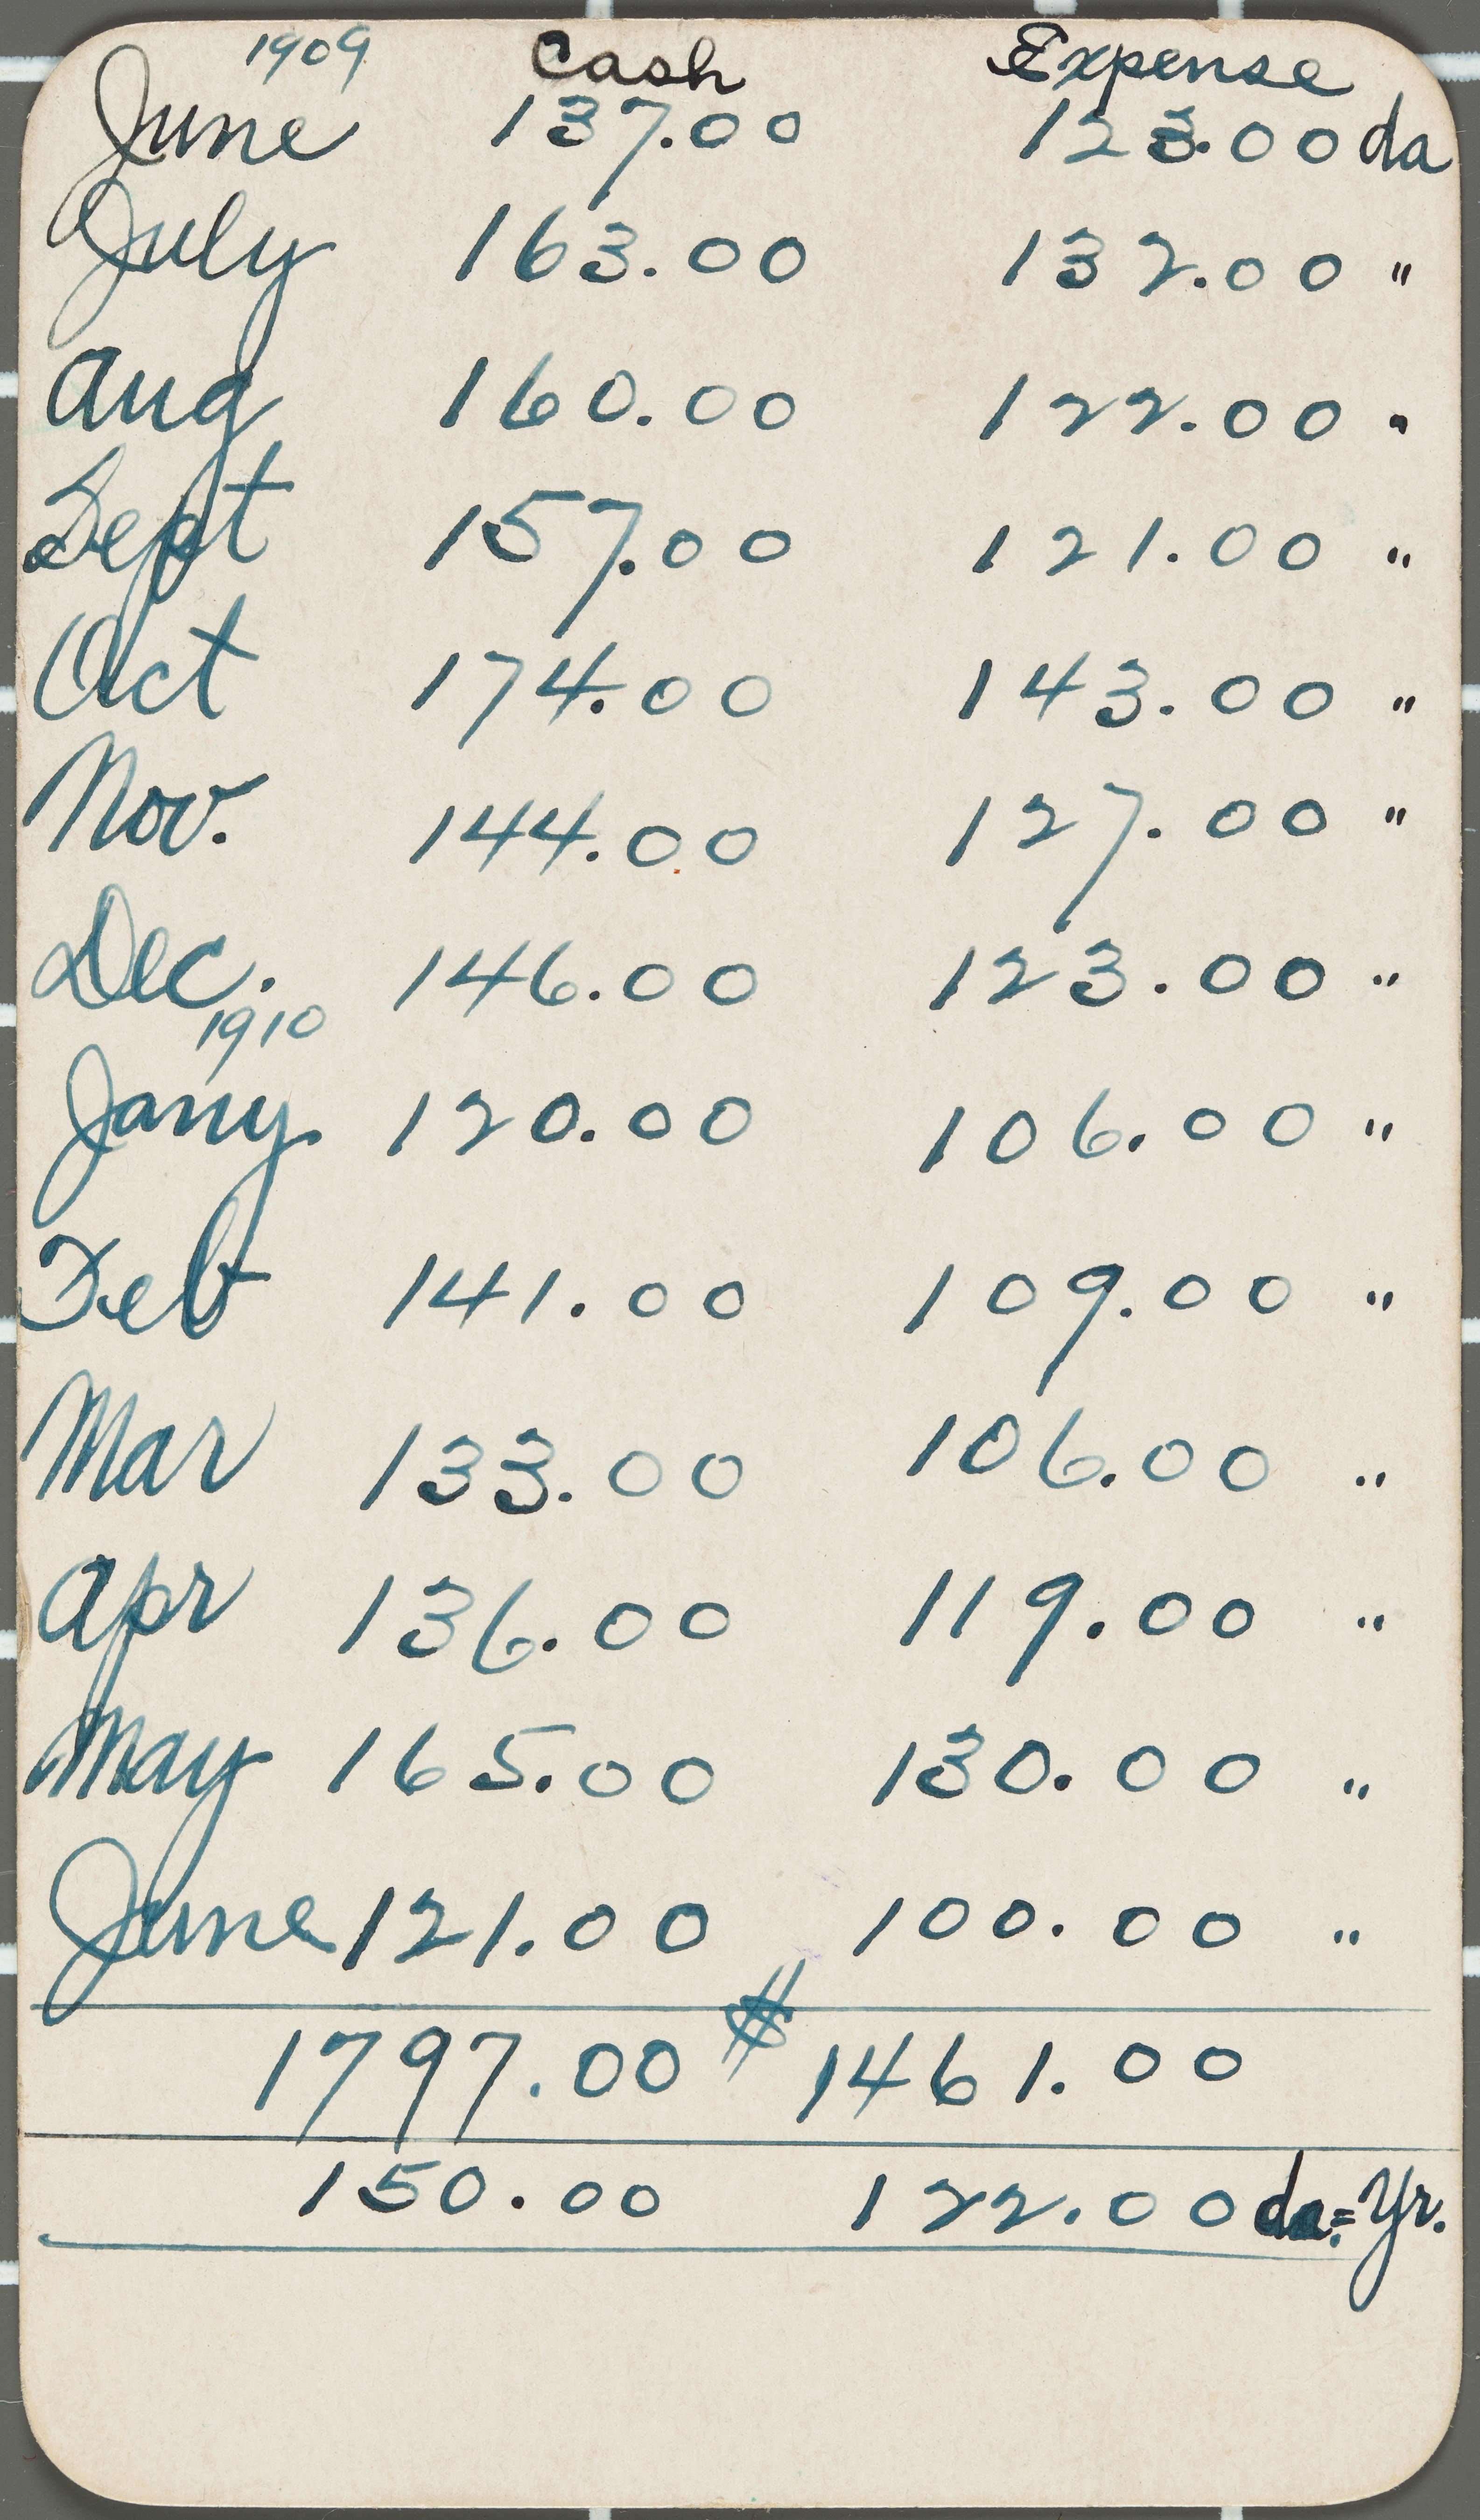 1909 Cash Expense
June 137.00 123.00 da
July 163.00 132.00 "
Aug 160.00 122.00 "
Sept 157.00 121.00 "
Oct 174.00 143.00 "
Nov. 144.00 127.00 "
Dec. 146.00 123.00 "
1910
Jany. 120.00 106.00 "
Feb 141.00 109.00 "
Mar 133.00 106.00 "
Apr 136.00 119.00 "
May 165.00 130.00 "
June 121.00 100.00 "
1797.00 $ 1461.00
150.00 122.00 da = Yr.